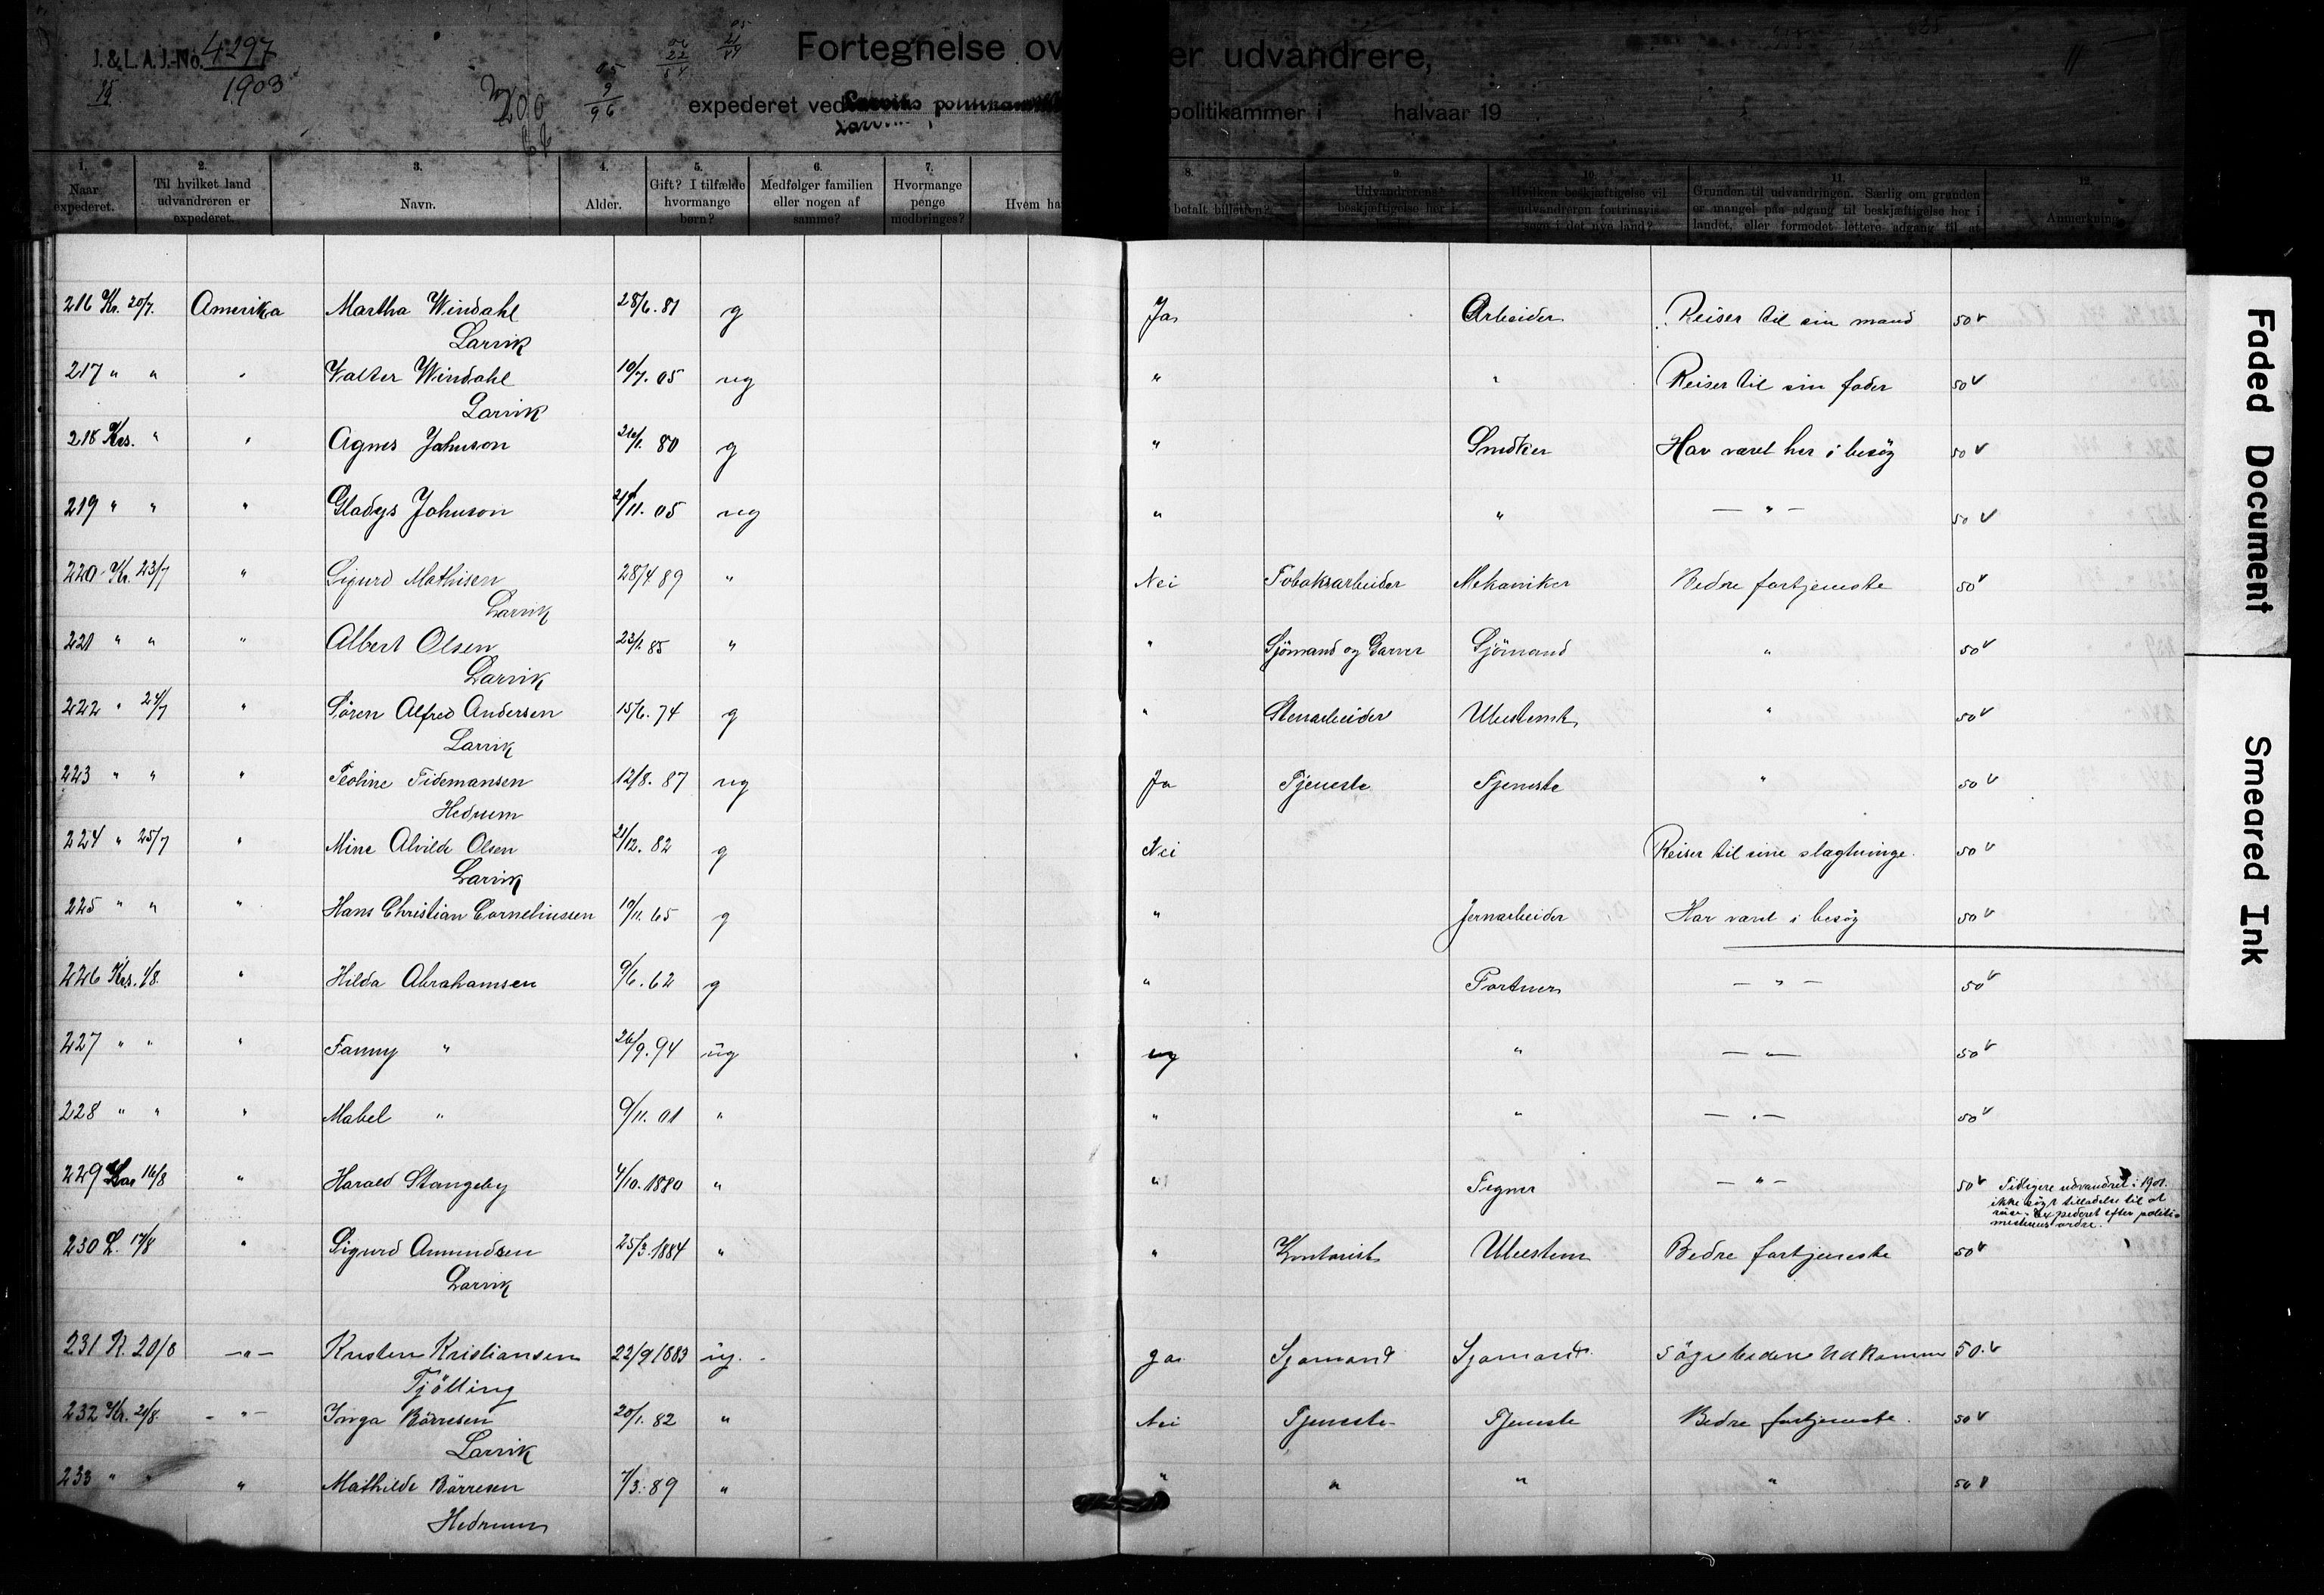 J. & L. A. J.-No. 4297
1903
Fortegnelse over udvandrere,
expederet ved politikammer i halvaar 19
1. Naar expederet.
2. Til hvilket land udvandreren er expederet.
3. Navn.
4. Alder.
5. Gift? I tilfælde hvormange børn?
6. Medfølger familien eller nogen af samme?
7. Hvormange penge medbringes?
8. Hvem ha betalt billetten?
9. Udvandrerens beskjæftigelse her i
10. Hvilken beskjæftigelse vil udvandreren fortrinsvis søge i det nye land?
11. Grunden til udvandringen. Særlig om grunden er mangel paa adgang til beskjæftigelse her i landet, eller formodet lettere adgang til at
12. Anmerkning.
216 Kr. 20/7. Amerika Martha Windahl 28/6. 81 g Ja Arbeider Reiser til sin mand 50 v
Larvik
217 " " " Valter Windahl 10/7. 05 ug " " Reiser til sin fader 50 v
Larvik
218 Krs. " " Agnes Johnson 80 g " Snedker Har været her i besøg 50 v
219 " " " Gladys Johnson 05 ug " " — " — 50 v
220 Kr. 23/7 " Sigurd Mathisen 28/4 89 " Nei Tobaksarbeider Mekaniker Bedre fortjeneste 50 v
Larvik
221 " " " Albert Olsen 23/1. 85 " " Sjömand og Garver Sjömand " 50 v
Larvik
222 " 24/7 " Sören Alfred Andersen 15/6. 74 g " Stenarbeider Ubestemt " 50 v
Larvik
223 " " " Teoline Tidemansen 12/8. 87 ug Ja Tjeneste Tjeneste " 50 v
Hedrum
224 " 25/7 " Mine Alvilde Olsen 21/12. 82 g Nei Reiser til sine slægtninge. 50 v
Larvik
225 " " " Hans Christian Corneliussen 10/11. 65 g " Jernarbeider Har været i besøg 50 v
226 Krs. 1/8. " Hilda Abrahamsen 9/6. 62 g " Portner — " — 50 v
227 " " " Fanny " 26/9. 94 ug ug " — " — 50 v
228 " " " Mabel " 9/11. 01 " " " — " — 50 v
229 16/8 " Harald Stangeby 4/10. 1880 " " Tegner — " — 50 v Tidligere udvandret i 1901.
ikke søgt tilladelse til at
reise. Expederet efter politi-
mesterens ordre.
230 L. 17/8 " Sigurd Amundsen 25/3. 1884 " " Kontorist Ubestem Bedre fortjeneste 50 v
Larvik
231 K. 20/8 — " — Kristen Kristiansen 22/9 1883 ug. ja Sjømand Sjømand Søge bedre udkomme 50. v
Tjölling
232 Kr. 21/8. — " — Inga Börresen 20/1. 82 " Nei Tjeneste Tjeneste Bedre fortjeneste. 50 v
Larvik
233 " " " Mathilde Börresen 7/3. 89 " " " " " 50 v
Hedrum
Faded Document
Smeared Ink